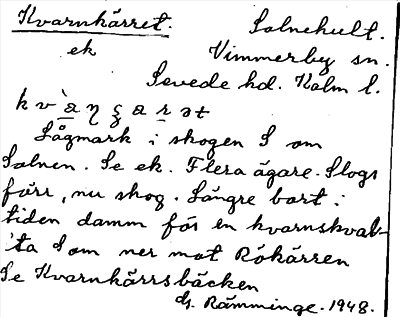 Kvarnkärret. Solnehult.
ek Vimmerby sn.
Sevede hd. Kalm l.
Lågmark i skogen S om
Solnen. Se ek. Flera ägare. Slogs
förr, nu skog. Längre bort i
tiden damm för en kvarnskval-
ta S om ner mot Rökärren
Se Kvarnkärrsbäcken
G. Rämminge. 1948.